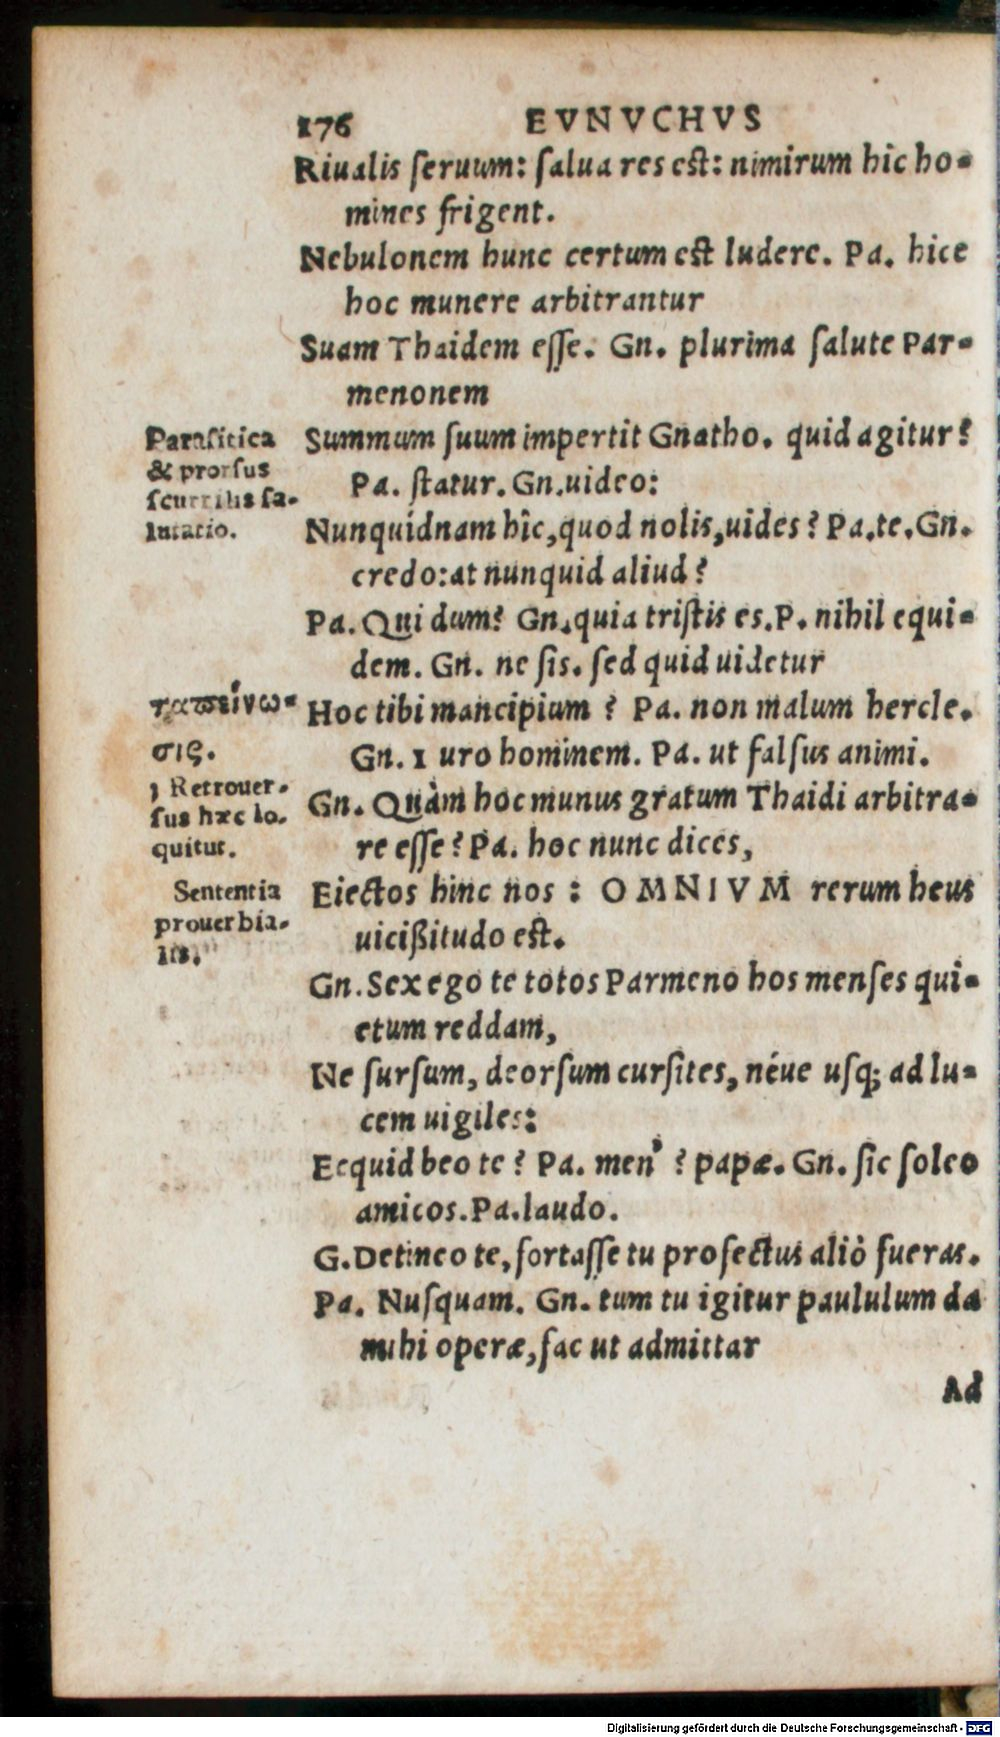 176 EVNVCHVS
Riualis ſeruum: ſalua res eſt: nimirum hîc ho-
mines frigent.
Nebulonem hunc certum eſt ludere. Pa. hice
hoc munere arbitrantur
Suam Thaidem eſſe. Gn. plurima ſalute Par-
menonem
Summum ſuum impertit Gnatho. quid agitur?
Pa. ſtatur. Gn. uideo:
Nunquidnam hîc, quod nolis, uides? Pa. te. Gn.
credo: at nunquid aliud?
Pa. Qui dum? Gn. quia triſtis es. P. nihil equi-
dem. Gn. ne ſis. ſed quid uidetur
Hoc tibi mancipium? Pa. non malum hercle.
Gn. 1 uro hominem. Pa. ut falſus animi.
Gn. Quàm hoc munus gratum Thaidi arbitra-
re eſſe? Pa. hoc nunc dices,
Eiectos hinc nos: OMNIVM rerum heus
uicißitudo eſt.
Gn. Sex ego te totos Parmeno hos menſes qui-
etum reddam,
Ne ſurſum, deorſum curſites, néue uſq; ad lu-
cem uigiles:
Ecquid beo te? Pa. men'? papæ. Gn. ſic ſoleo
amicos. Pa. laudo.
G. Detineo te, fortaſſe tu profectus aliò fueras.
Pa. Nuſquam. Gn. tum tu igitur paululum da
mihi operæ, fac ut admittar
Ad
Paraſitica
& prorſus
ſcurrilis ſa-
lutatio.
ταπείνω-
σις.
1 Retrouer-
ſus hæc lo-
quitur.
Sententia
prouerbia-
lis.
Digitalisierung gefördert durch die Deutsche Forschungsgemeinschaft - DFG